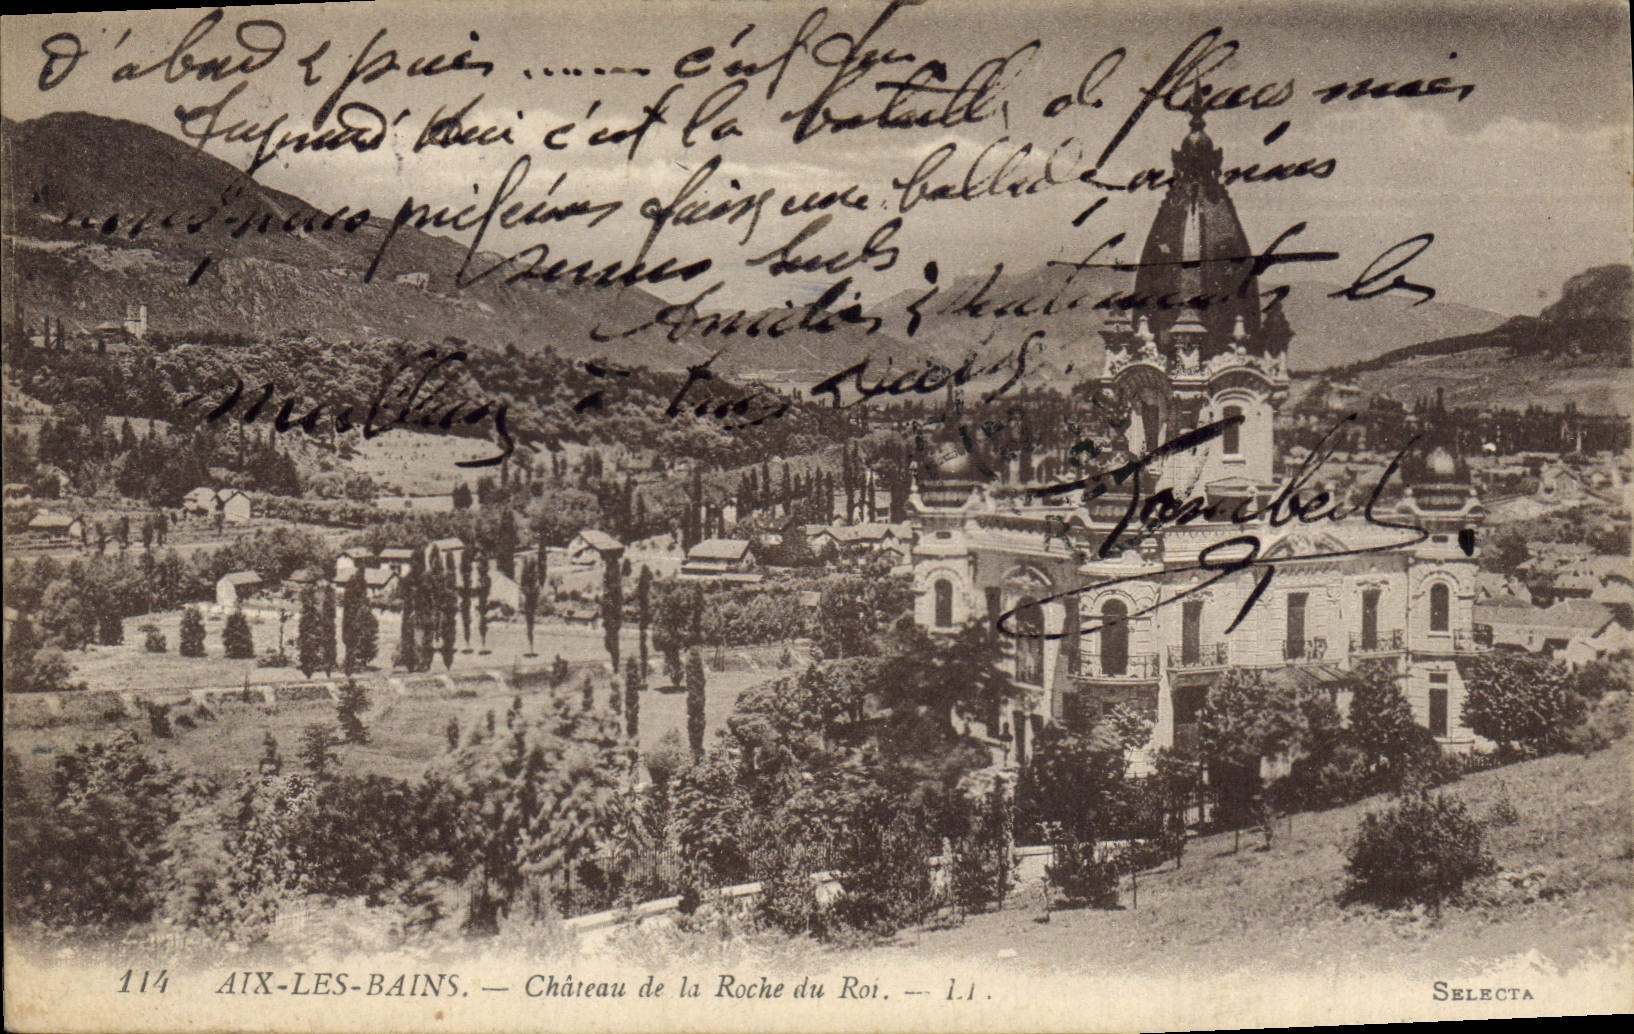 D'abord & puis ...... c'est fini
Aujourd'hui c'est la bataille de fleurs mais
nous nous préférons faire une ballade où nous
serons seuls.
Amitiés & sentiments les
meilleurs à tous deux.
114 AIX-LES-BAINS. — Château de la Roche du Roi. — LL.
SELECTA